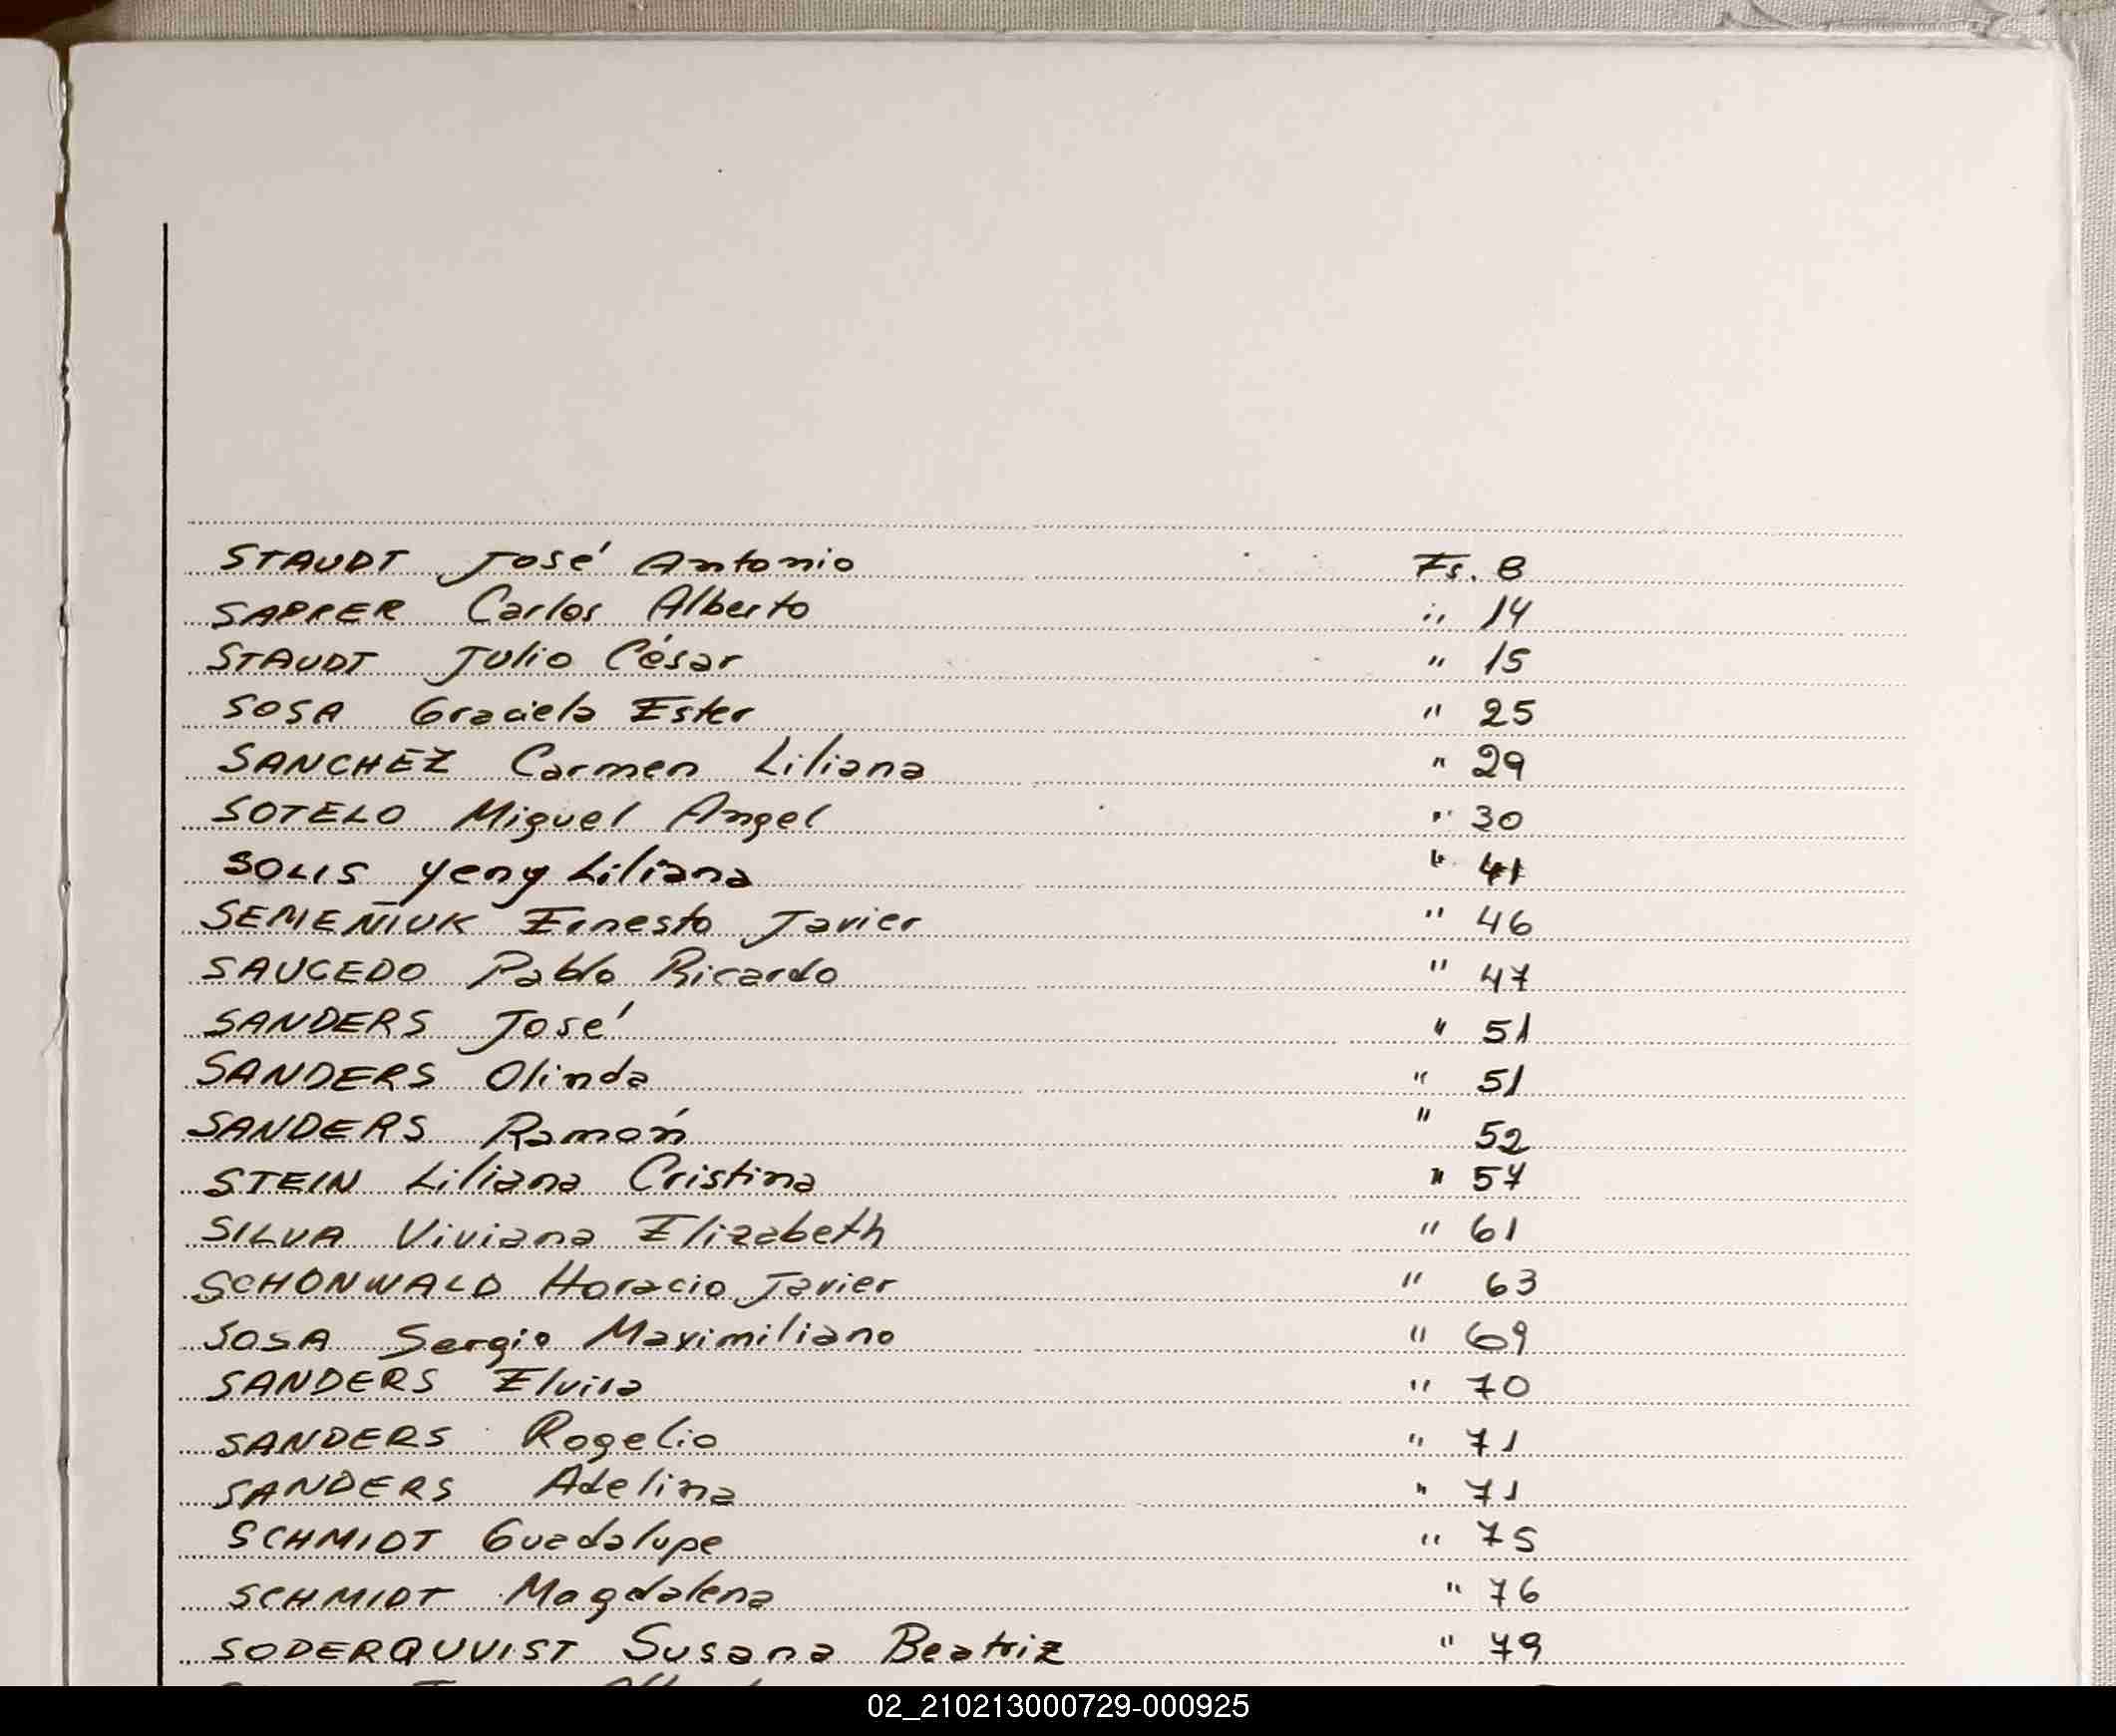 STAUDT José Antonio Fs. 8
SAPPER Carlos Alberto " 14
STAUDT Julio César " 15
SOSA Graciela Ester " 25
SANCHEZ Carmen Liliana " 29
SOTELO Miguel Angel " 30
SOLIS Yeny Liliana " 41
SEMEÑIUK Ernesto Javier " 46
SAUCEDO Pablo Ricardo " 47
SANDERS José " 51
SANDERS Olinda " 51
SANDERS Ramón " 52
STEIN Liliana Cristina " 57
SILVA Viviana Elizabeth " 61
SCHONWALD Horacio Javier " 63
SOSA Sergio Maximiliano " 69
SANDERS Elvira " 70
SANDERS Rogelio " 71
SANDERS Adelina " 71
SCHMIDT Guadalupe " 75
SCHMIDT Magdalena " 76
SODERQUVIST Susana Beatriz " 79
02_210213000729-000925